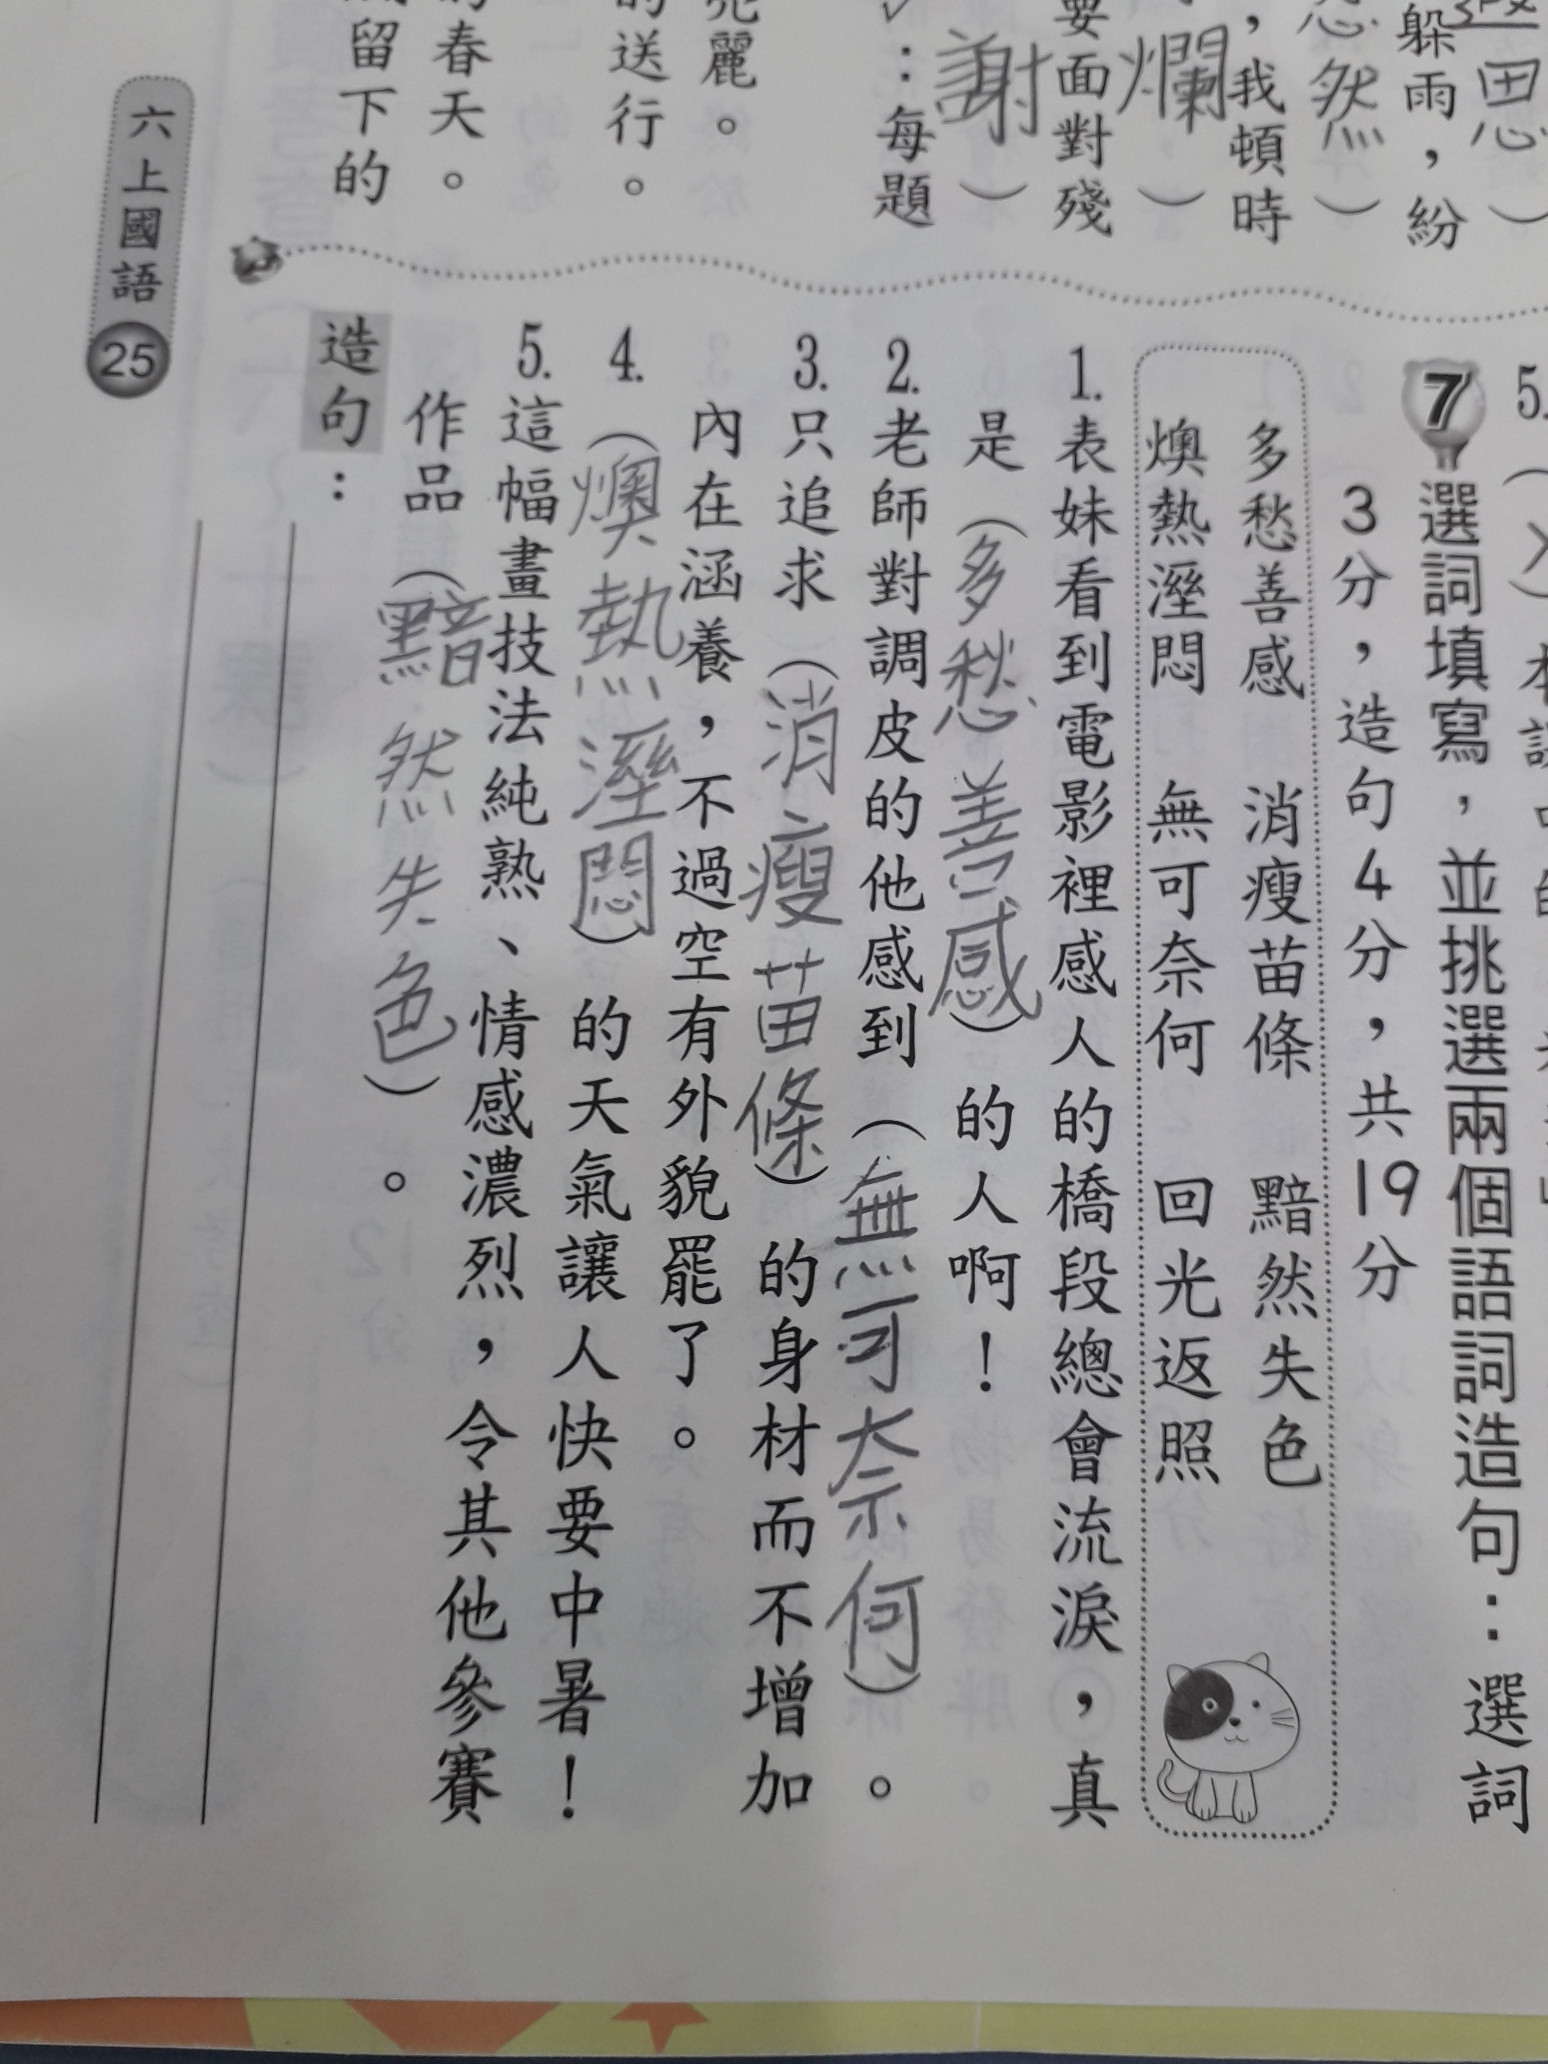 遐思）
躲雨，紛
忽然）
，我頓時
爛）
要面對殘
謝）
：每題
麗。
的送行。
的春天。
留下的
5.（
7 選詞填寫，並挑選兩個語詞造句：選詞
3分，造句4分，共19分
多愁善感 消瘦苗條 黯然失色
燠熱溼悶 無可奈何 回光返照
1.表妹看到電影裡感人的橋段總會流淚，真
是（多愁善感）的人啊！
2.老師對調皮的他感到（無可奈何）。
3.只追求（消瘦苗條）的身材而不增加
內在涵養，不過空有外貌罷了。
4.（燠熱溼悶）的天氣讓人快要中暑！
5.這幅畫技法純熟、情感濃烈，令其他參賽
作品（黯然失色）。
造句：
六上國語 25